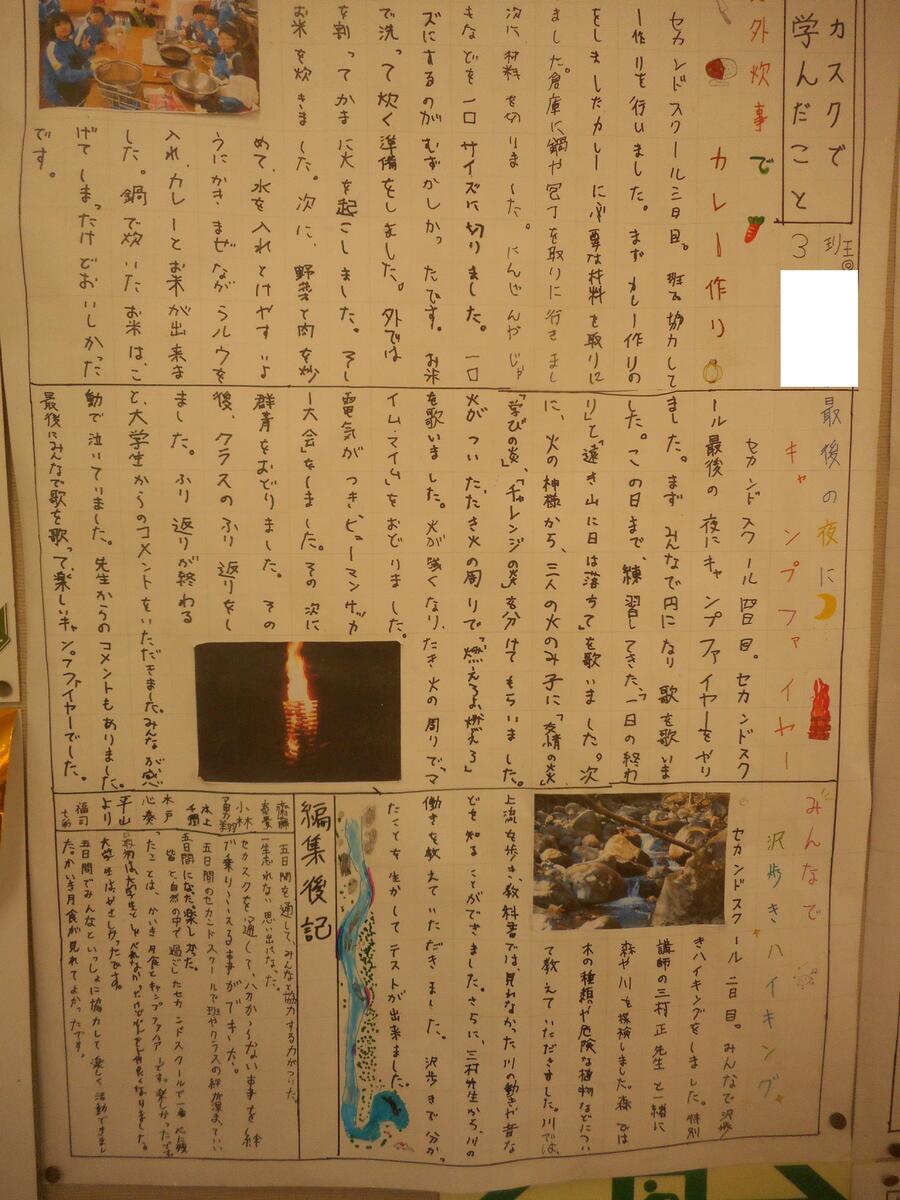 カスクで
学んだこと
3班
外炊事で
カレー作り
セカンドスクール三日目。班で協力して
カレー作りを行いました。まずカレー作りの
をしましたカレーに必要な材料を取りに
ました。倉庫に鍋や包丁を取りに行きまし
次に材料を切りました。にんじんやじゃ
もなどを一口サイズに切りました。一口
ズにするのがむずかしかったです。お米
で洗って炊く準備をしました。外では
を割ってかまに火を起こしました。そし
お米を炊きました。次に、野菜と肉を炒
めて、水を入れとけやすいよ
うにかきまぜながらルウを
入れ、カレーとお米が出来ま
した。鍋で炊いたお米は、こ
げてしまったけどおいしかった
です。
最後の夜に
キャンプファイヤー
セカンドスクール四日目。セカンドスク
ール最後の夜にキャンプファイヤーをやり
ました。まずみんなで円になり歌を歌いま
した。この日まで、練習してきた、「一日の終わ
り」と「遠き山に日は落ちて」を歌いました。次
に、火の神様から、三人の火のみ子に「友情の炎」
「学びの炎」、「チャレンジの炎」を分けてもらいました。
火がついた、たき火の周りで「燃えろよ燃えろ」
を歌いました。火が強くなり、たき火の周りで、マ
イム・マイム」をおどりました。
電気がつき、ヒューマンサッカ
ー大会」をしました。その次に
群青をおどりました。その
後、クラスのふり返りをし
ました。ふり返りが終わる
と、大学生からのコメントをいただきました。みんなが感
動で泣いていました。先生からのコメントもありました。
最後にみんなで歌を歌って、楽しいキャンプファイヤーでした。
みんなで
沢歩きハイキング
セカンドスクール二日目。みんなで沢歩
きハイキングをしました。特別
講師の三村正先生と一緒に
森や川を探検しました。森では
木の種類や危険な植物などについ
て教えていただきました。川では、
上流を歩き、教科書では、見れなかった川の動きや岩な
どを知ることができました。さらに、三村先生から、川の
働きを教えていただきました。沢歩きで分か
たことを生かしてテストが出来ました。
編集後記
五日間を通して、みんなと協力する力がついた。
一生忘れない思い出になった。
小林 セカスクを通して、分からない事を絆
で乗りこえる事ができた。
水上 五日間のセカンドスクールで班やクラスの絆が深まってい
五日間になった。楽しかった。
木戸 皆と自然の中で過ごしたセカンドスクールで一番心に残
心奏 ったことは、かいき月食とキャンプファイアーです。楽しかったです。
平山
より 大学生は、やさしかったです。
福司 五日間でみんなといっしょに協力して楽しく活動できまし
た。かいき月食が見れてよかったです。